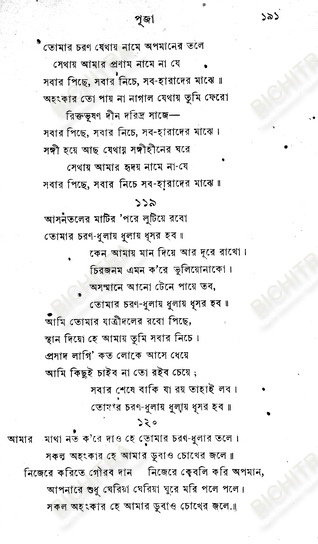 পূজা ১৯১
তোমার চরণ যেথায় নামে অপমানের তলে
সেথায় আমার প্রণাম নামে না যে
সবার পিছে, সবার নিচে, সব-হারাদের মাঝে॥
অহংকার তো পায় না নাগাল যেথায় তুমি ফেরো
রিক্তভূষণ দীন দরিদ্র সাজে—
সবার পিছে, সবার নিচে, সব-হারাদের মাঝে।
সঙ্গী হয়ে আছ যেথায় সঙ্গীহীনের ঘরে
সেথায় আমার হৃদয় নামে না-যে
সবার পিছে, সবার নিচে, সব-হারাদের মাঝে॥
১১৯
আসনতলের মাটির 'পরে লুটিয়ে রবো
তোমার চরণ-ধুলায় ধুলায় ধূসর হব॥
কেন আমায় মান দিয়ে আর দূরে রাখো।
চিরজনম এমন ক'রে ভুলিয়োনাকো।
অসম্মানে আনো টেনে পায়ে তব,
তোমার চরণ-ধুলায় ধুলায় ধূসর হব॥
আমি তোমার যাত্রীদলের রবো পিছে,
স্থান দিয়ো হে আমায় তুমি সবার নিচে।
প্রসাদ লাগি' কত লোকে আসে ধেয়ে
আমি কিছুই চাইব না তো রইব চেয়ে;
সবার শেষে বাকি যা রয় তাহাই লব।
তোমার চরণ-ধুলায় ধুলায় ধূসর হব॥
১২০
আমার মাথা নত ক'রে দাও হে তোমার চরণ-ধুলার তলে।
সকল অহংকার হে আমার ডুবাও চোখের জলে॥
নিজেরে করিতে গৌরব দান নিজেরে কেবলি করি অপমান,
আপনারে শুধু ঘেরিয়া ঘেরিয়া ঘুরে মরি পলে পলে।
সকল অহংকার হে আমার ডুবাও চোখের জলে॥